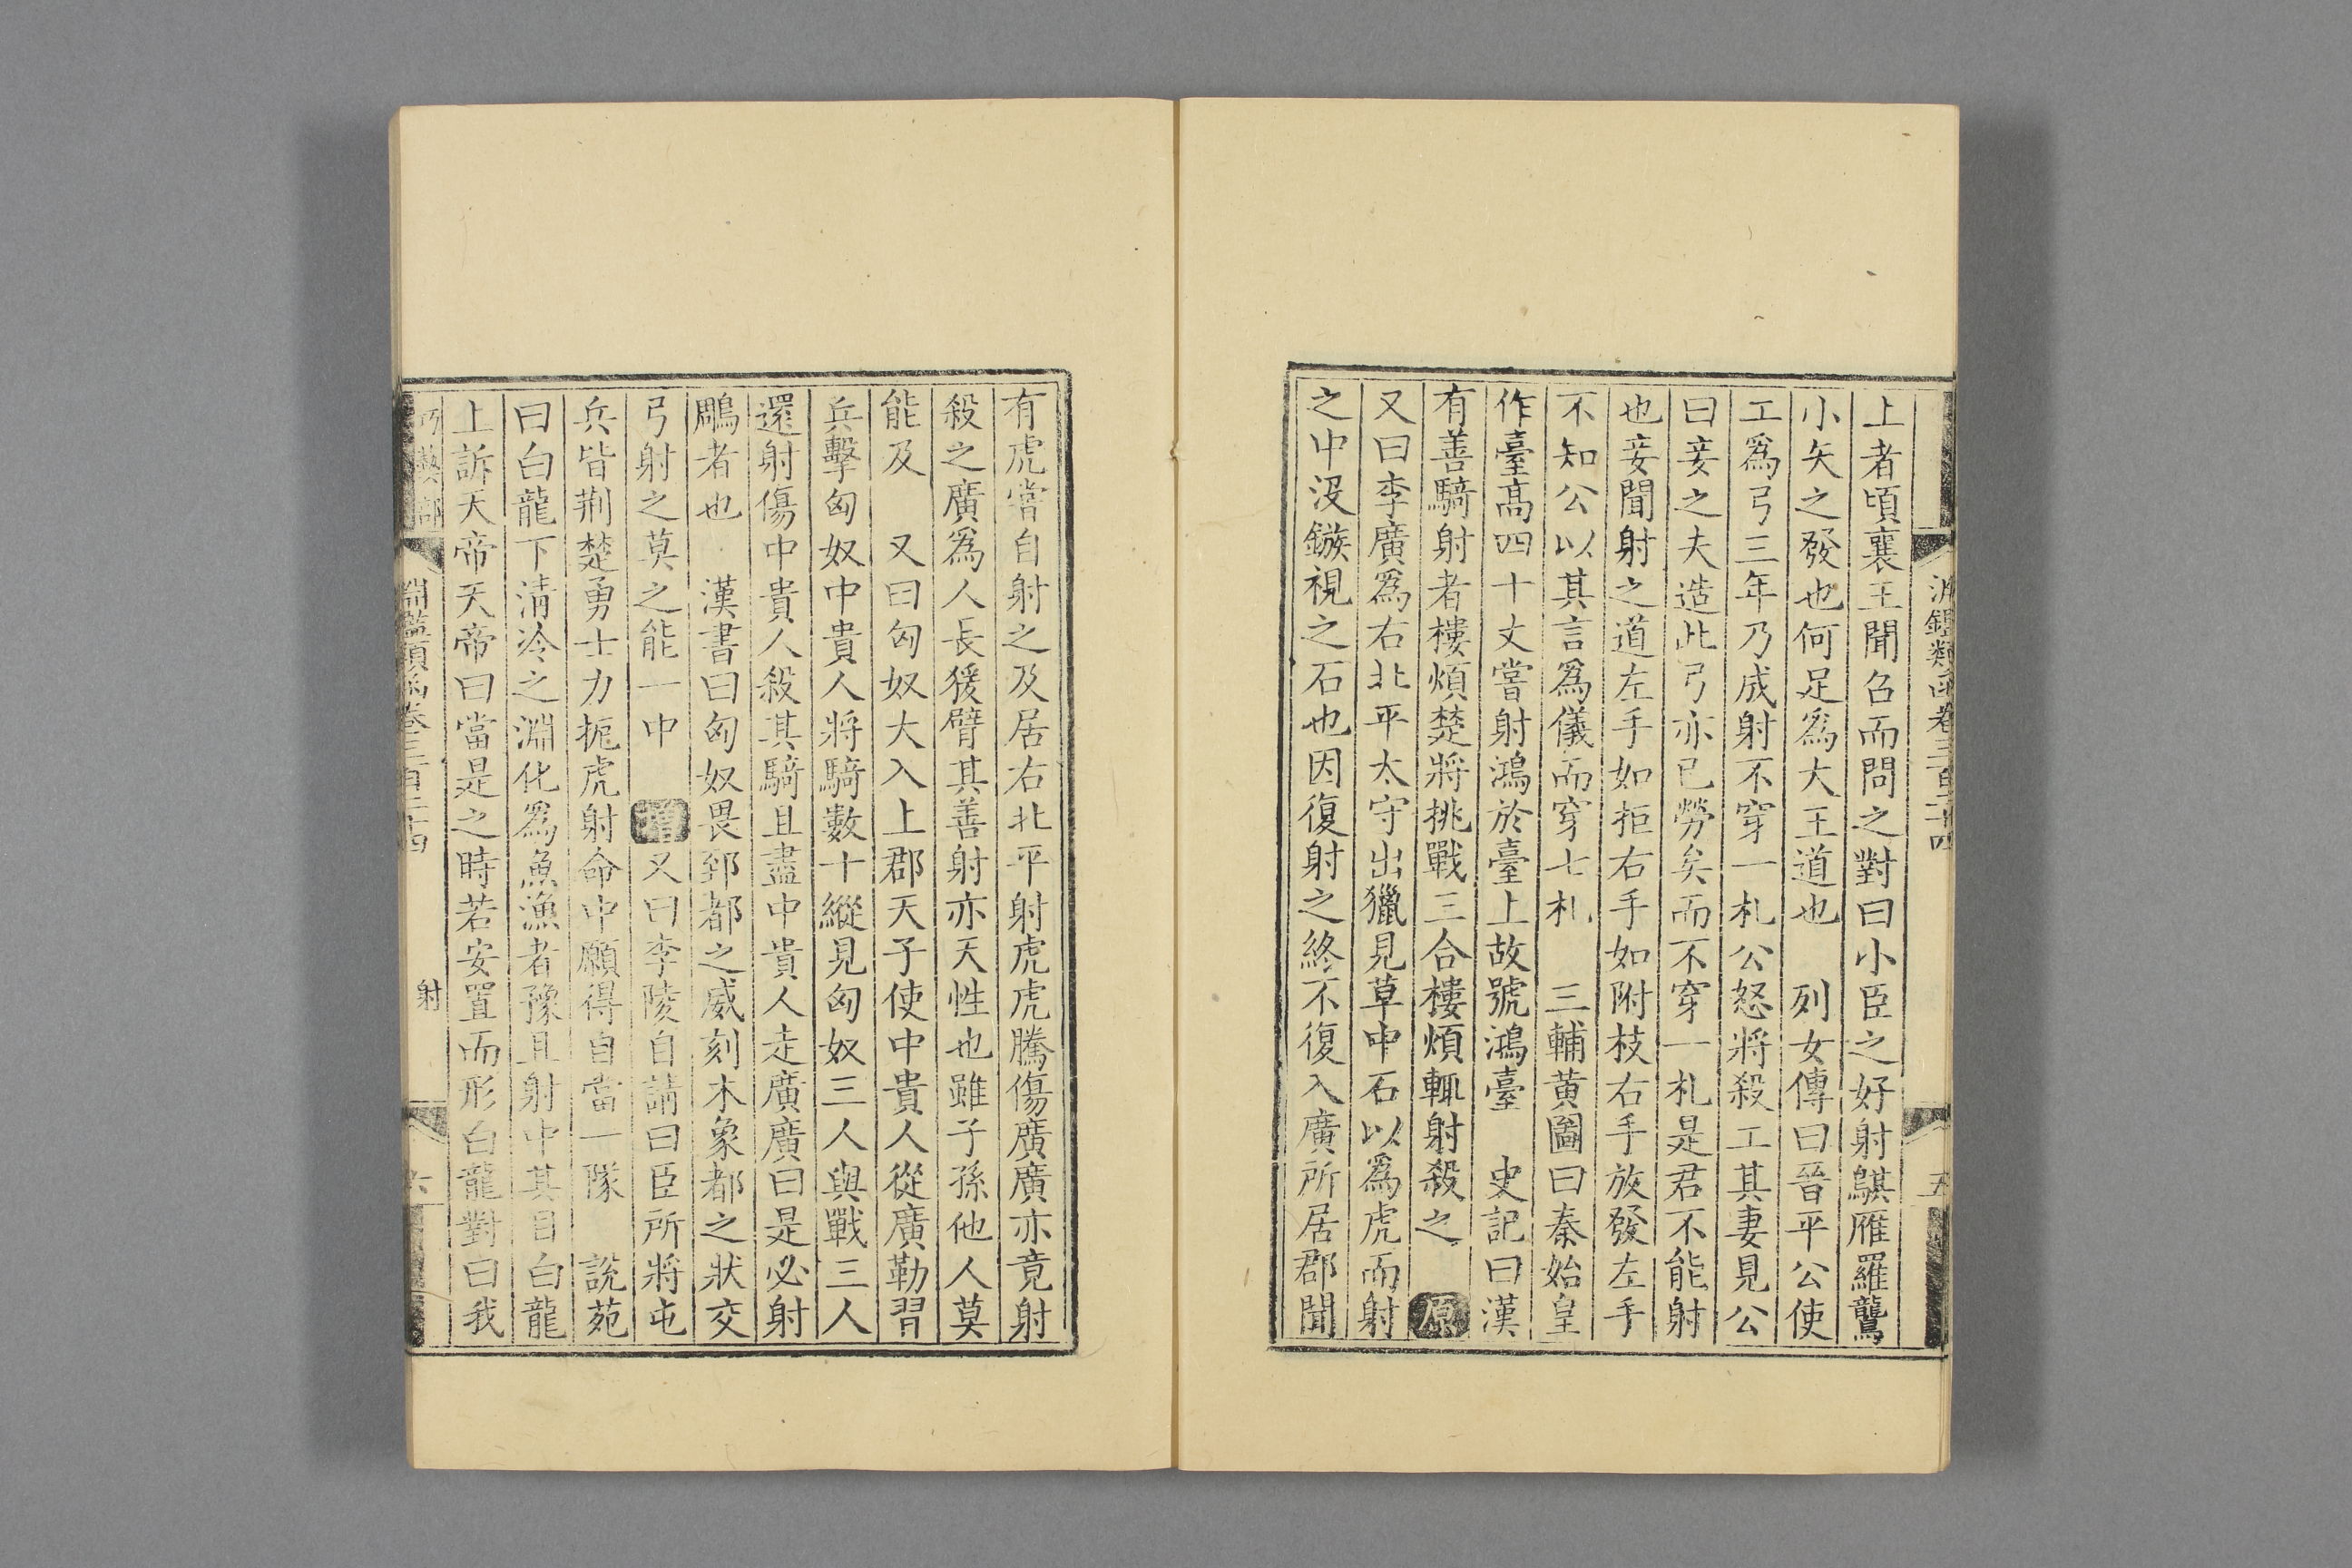 淵鑑類函卷三百二十四
五
上者頃襄王聞召而問之對曰小臣之好射鶀雁羅鸗
小矢之發也何足爲大王道也　列女傳曰晉平公使
工爲弓三年乃成射不穿一札公怒將殺工其妻見公
曰妾之夫造此弓亦已勞矣而不穿一札是君不能射
也妾聞射之道左手如拒右手如附枝右手放發左手
不知公以其言爲儀而穿七札　三輔黃圖曰秦始皇
作臺高四十丈嘗射鴻於臺上故號鴻臺　史記曰漢
有善騎射者樓煩楚將挑戰三合樓煩輒射殺之　原
又曰李廣爲右北平太守出獵見草中石以爲虎而射
之中没鏃視之石也因復射之終不復入廣所居郡聞
有虎嘗自射之及居右北平射虎虎騰傷廣廣亦竟射
殺之廣爲人長猨臂其善射亦天性也雖子孫他人莫
能及　又曰匈奴大入上郡天子使中貴人從廣勒習
兵擊匈奴中貴人將騎數十縱見匈奴三人與戰三人
還射傷中貴人殺其騎且盡中貴人走廣廣曰是必射
鵰者也　漢書曰匈奴畏郅都之威刻木象都之狀交
弓射之莫之能一中　增又曰李陵自請曰臣所將屯
兵皆荆楚勇士力扼虎射命中願得自當一隊　說苑
曰白龍下清泠之淵化爲魚漁者豫且射中其目白龍
上訴天帝天帝曰當是之時若安置而形白龍對曰我
巧藝部
淵鑑類函卷三百二十四
射
六